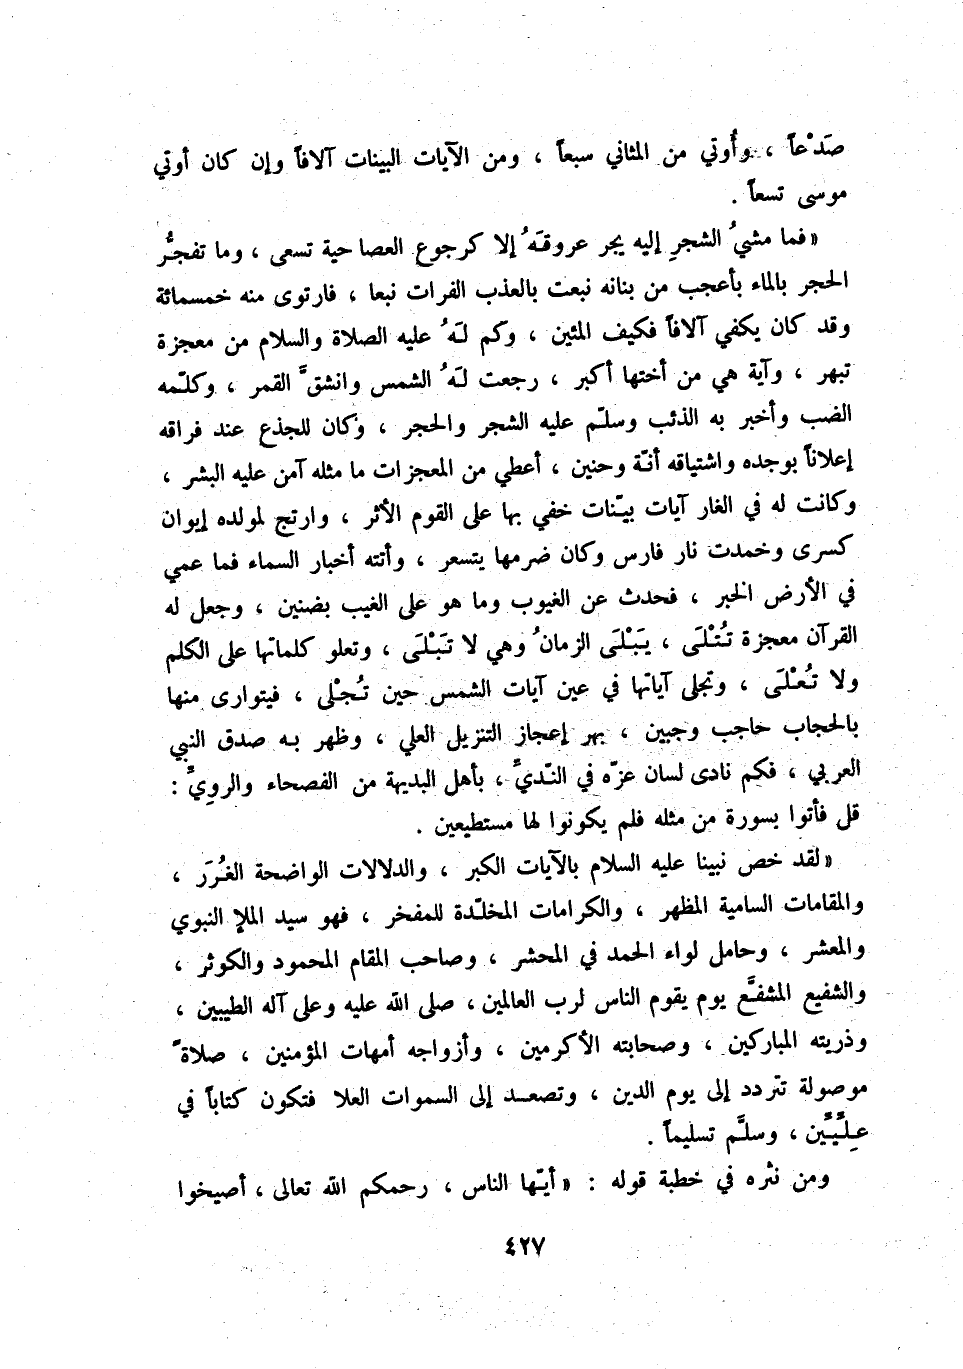 صَدْعاً ، وأُوتي من المثاني سبعاً ، ومن الآيات البينات آلافاً وإن كان أوتي
موسى تسعاً .
« فما مشيُ الشجرِ إليه يجر عروقَهُ إلا كرجوع العصا حية تسعى ، وما تفجُّر
الحجر بالماء بأعجب من بنانه نبعت بالعذب الفرات نبعا ، فارتوى منه خمسمائة
وقد كان يكفي آلافاً فكيف المئين ، وكم لَهُ عليه الصلاة والسلام من معجزة
تبهر ، وآية هي من أختها أكبر ، رجعت لَهُ الشمس وانشقَّ القمر ، وكلّمه
الضب وأخبر به الذئب وسلّم عليه الشجر والحجر ، وكان للجذع عند فراقه
إعلاناً بوجده واشتياقه أنّة وحنين ، أعطي من المعجزات ما مثله آمن عليه البشر ،
وكانت له في الغار آيات بيّنات خفي بها على القوم الأثر ، وارتج لمولده إيوان
كسرى وخمدت نار فارس وكان ضرمها يتسعر ، وأتته أخبار السماء فما عمي
في الأرض الخبر ، فحدث عن الغيوب وما هو على الغيب بضنين ، وجعل له
القرآن معجزة تُتْلَى ، يَبْلَى الزمانُ وهي لا تَبْلَى ، وتعلو كلماتها على الكلم
ولا تُعْلَى ، وتجلى آياتها في عين آيات الشمس حين تُجْلى ، فيتوارى منها
بالحجاب حاجب وجبين ، بهر إعجاز التنزيل العلي ، وظهر به صدق النبي
العربي ، فكم نادى لسان عزّه في النّديِّ ، بأهل البديهة من الفصحاء والرويِّ :
قل فأتوا بسورة من مثله فلم يكونوا لها مستطيعين .
« لقد خص نبينا عليه السلام بالآيات الكبر ، والدلالات الواضحة الغُرَر ،
والمقامات السامية المظهر ، والكرامات المخلّدة للمفخر ، فهو سيد الملإ النبوي
والمعشر ، وحامل لواء الحمد في المحشر ، وصاحب المقام المحمود والكوثر ،
والشفيع المشفَّع يوم يقوم الناس لرب العالمين ، صلى الله عليه وعلى آله الطيبين ،
وذريته المباركين ، وصحابته الأكرمين ، وأزواجه أمهات المؤمنين ، صلاةً
موصولة تتردد إلى يوم الدين ، وتصعد إلى السموات العلا فتكون كتاباً في
عِلِّيِّين ، وسلَّم تسليماً .
ومن نثره في خطبة قوله : « أيّها الناس ، رحمكم الله تعالى ، أصيخوا
٤٢٧